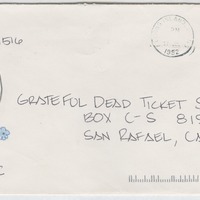 516
1992
GRATEFUL DEAD TICKET S
BOX C-S 815
SAN RAFAEL, CA
C